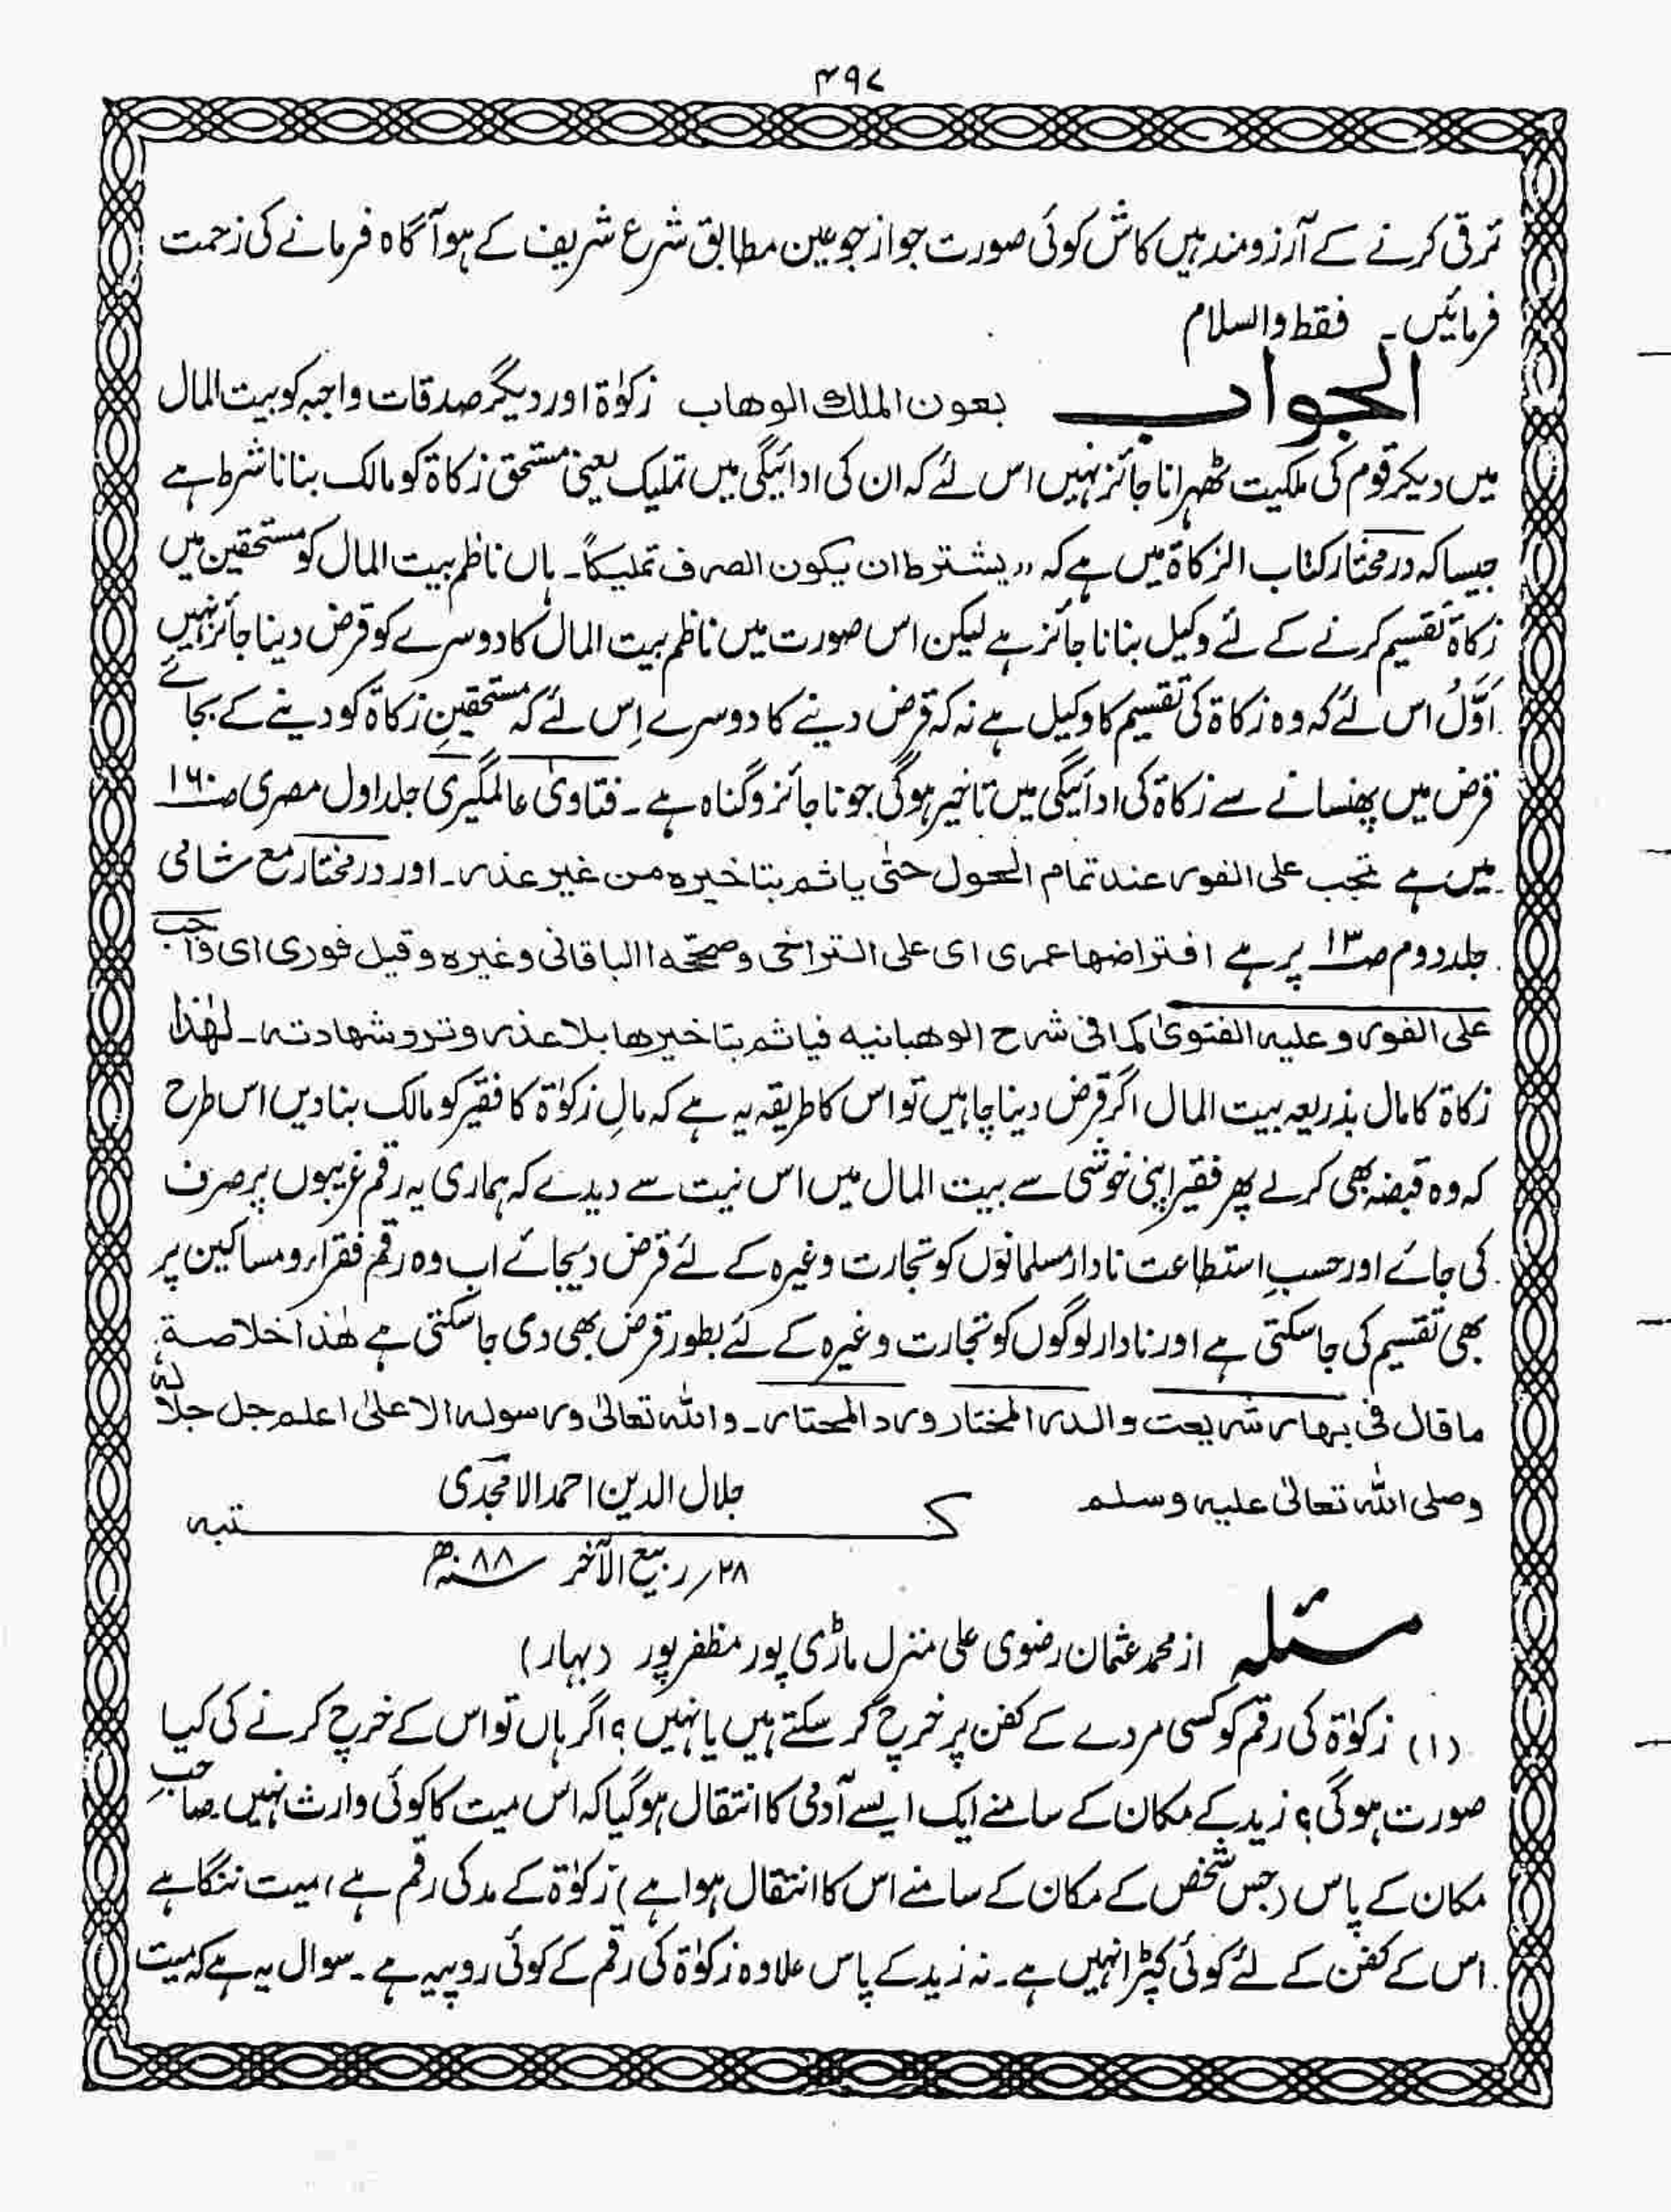 ۴۹۷
ترقی کرنے کے آرزومند ہیں کاش کوئی صورت جواز جو عین مطابق شرع شریف کے ہو آگاہ فرمانے کی زحمت
فرمائیں۔ فقط والسلام
الجواب بعون الملك الوهاب زکوٰۃ اور دیگر صدقات واجبہ کو بیت المال
میں دیکر قوم کی ملکیت ٹھہرانا جائز نہیں اس لئے کہ ان کی ادائیگی میں تملیک یعنی مستحق زکاۃ کو مالک بنانا شرط ہے
جیسا کہ درمختار کتاب الزکاۃ میں ہے کہ ،، یشترط ان یکون الصرف تملیکاً۔ ہاں ناظم بیت المال کو مستحقین میں
زکاۃ تقسیم کرنے کے لئے وکیل بنانا جائز ہے لیکن اس صورت میں ناظم بیت المال کا دوسرے کو قرض دینا جائز نہیں
اَوَّلُ اس لئے کہ وہ زکاۃ کی تقسیم کا وکیل ہے نہ کہ قرض دینے کا دوسرے اِس لئے کہ مستحقینِ زکاۃ کو دینے کے بجائے
قرض میں پھنسانے سے زکاۃ کی ادائیگی میں تاخیر ہوگی جو ناجائز و گناہ ہے ۔ فتاویٰ عالمگیری جلد اول مصری صـ۱۶۰
میں ہے تجب علی الفور عند تمام الحول حتٰی یاثم بتاخیرہ من غیر عذر۔ اور درمختار مع شامی
جلد دوم صـ۱۳ پر ہے افتراضها عمری ای علی التراخی وصححّه االباقانی وغیره وقیل فوری ای واجب
علی الفور وعلیه الفتویٰ کما فی شرح الوهبانیه فیاثم بتاخیرها بلا عذر وترد شهادته۔ لهٰذا
زکاۃ کا مال بذریعہ بیت المال اگر قرض دینا چاہیں تو اس کا طریقہ یہ ہے کہ مالِ زکوٰۃ کا فقیر کو مالک بنادیں اس طرح
کہ وہ قبضہ بھی کرلے پھر فقیر اپنی خوشی سے بیت المال میں اس نیت سے دیدے کہ ہماری یہ رقم غریبوں پر صرف
کی جائے اور حسبِ استطاعت نادار مسلمانوں کو تجارت وغیرہ کے لئے قرض دیجائے اب وہ رقم فقراء و مساکین پر
بھی تقسیم کی جاسکتی ہے اور نادار لوگوں کو تجارت وغیرہ کے لئے بطور قرض بھی دی جاسکتی ہے هٰذا خلاصة
ما قال فی بہار شریعت والدر المختار ورد المحتار۔ والله تعالیٰ ورسوله الاعلیٰ اعلم جل جلاله
وصلی الله تعالیٰ علیه وسلم
جلال الدین احمد الامجدی
کتبہ
۲۸؍ ربیع الآخر سنہ ۸۸ھ
مسئلہ از محمد عثمان رضوی علی منزل ماڑی پور مظفرپور (بہار)
(۱) زکوٰۃ کی رقم کو کسی مردے کے کفن پر خرچ کر سکتے ہیں یا نہیں ؟ اگر ہاں تو اس کے خرچ کرنے کی کیا
صورت ہوگی؟ زید کے مکان کے سامنے ایک ایسے آدمی کا انتقال ہوگیا کہ اس میت کا کوئی وارث نہیں صاحبِ
مکان کے پاس (جس شخص کے مکان کے سامنے اس کا انتقال ہوا ہے) زکوٰۃ کے مد کی رقم ہے، میت ننگا ہے
اس کے کفن کے لئے کوئی کپڑا نہیں ہے۔ نہ زید کے پاس علاوہ زکوٰۃ کی رقم کے کوئی روپیہ ہے ۔ سوال یہ ہے کہ میت